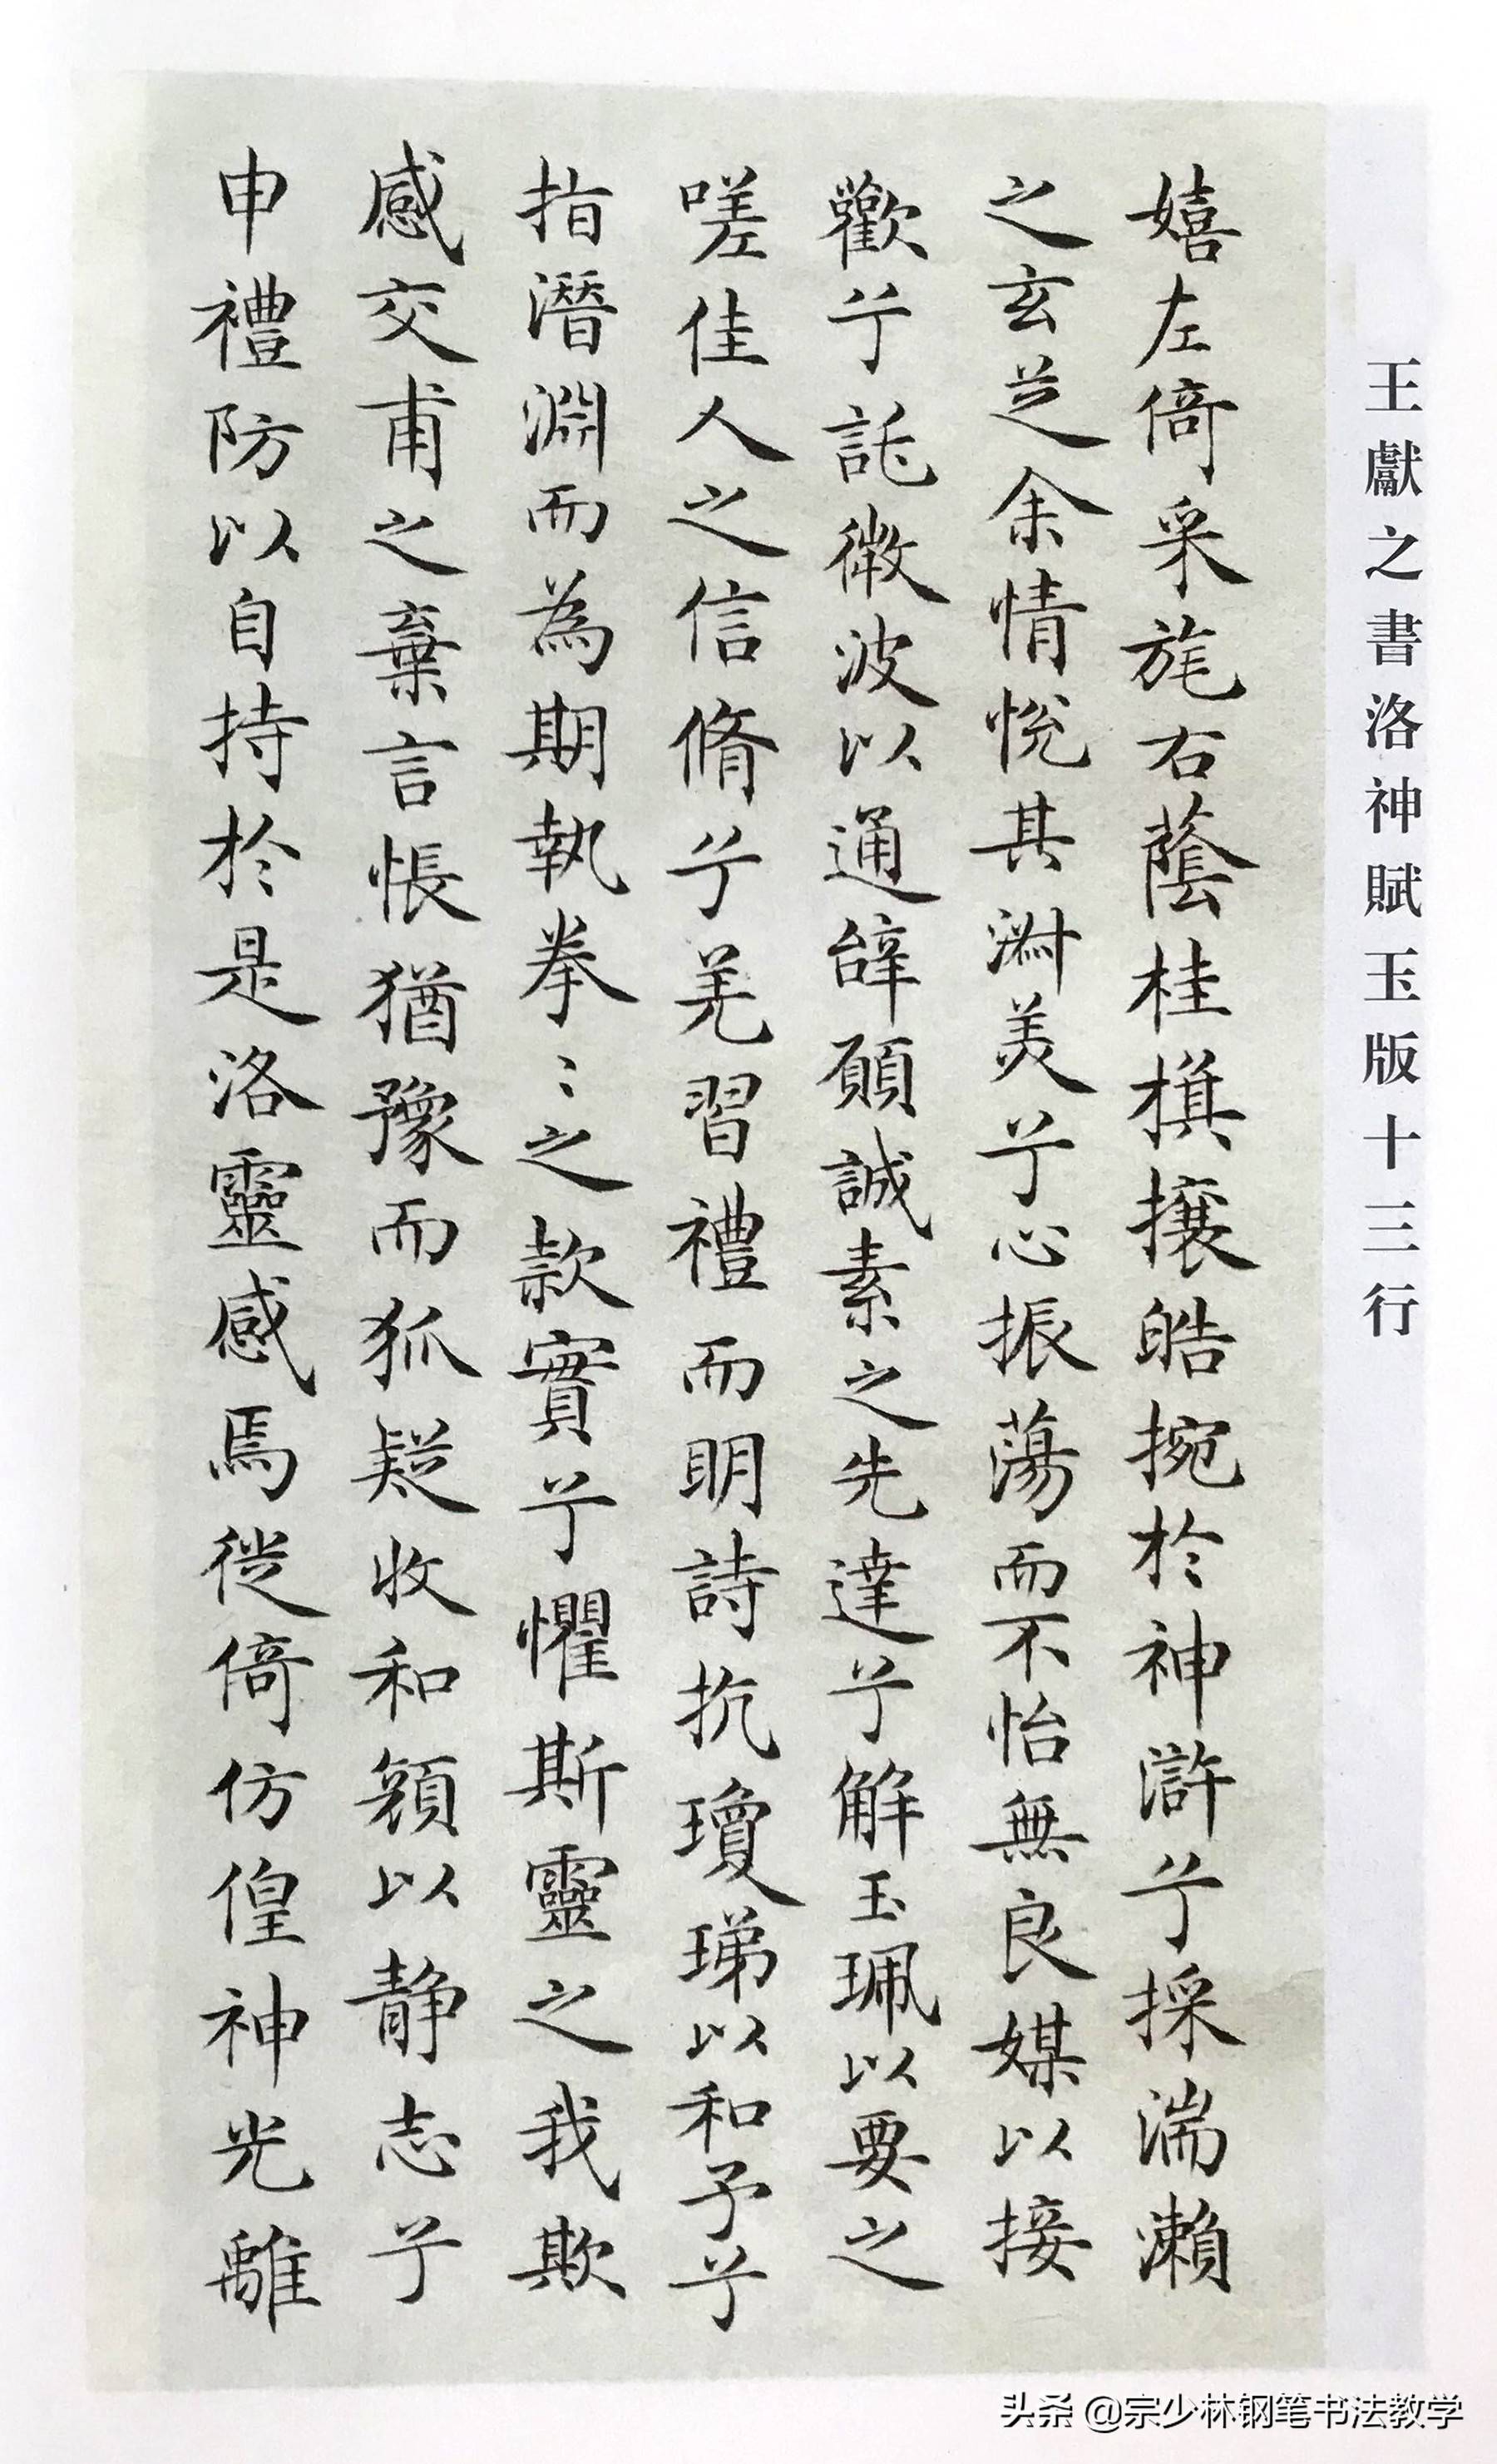 王獻之書洛神賦玉版十三行
嬉左倚采旄右蔭桂棋攘皓捥於神滸兮採湍瀨
之玄芝余情悅其淑美兮心振蕩而不怡無良媒以接
歡兮託微波以通辭願誠素之先達兮解玉珮以要之
嗟佳人之信脩兮羌習禮而明詩抗瓊珶以和予兮
指潛淵而為期執拳〻之款實兮懼斯靈之我欺
感交甫之棄言悵猶豫而狐疑收和顏以静志兮
申禮防以自持於是洛靈感焉徙倚仿偟神光離
头条 @宗少林钢笔书法教学